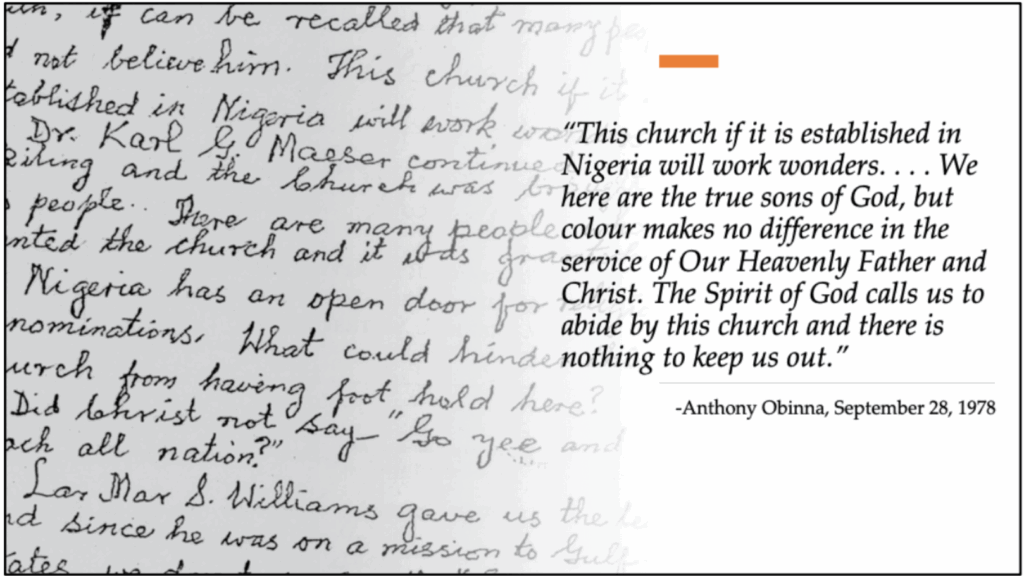 it can be recalled that many
not believe him. This church if it
tablished in Nigeria will work
Dr. Karl G. Maeser continued
and the Church was
people.. There are many people
nted the church and it was
Nigeria has an open door for
nominations. What could hinde
urch from having foot hold here?
Did Christ not say "Go yee and
ach all nation?"
Lar Mar S. Williams gave us the
d since he was on a mission to Gulf
ates,
“This church if it is established in
Nigeria will work wonders. . . . We
here are the true sons of God, but
colour makes no difference in the
service of Our Heavenly Father and
Christ. The Spirit of God calls us to
abide by this church and there is
nothing to keep us out.”
-Anthony Obinna, September 28, 1978